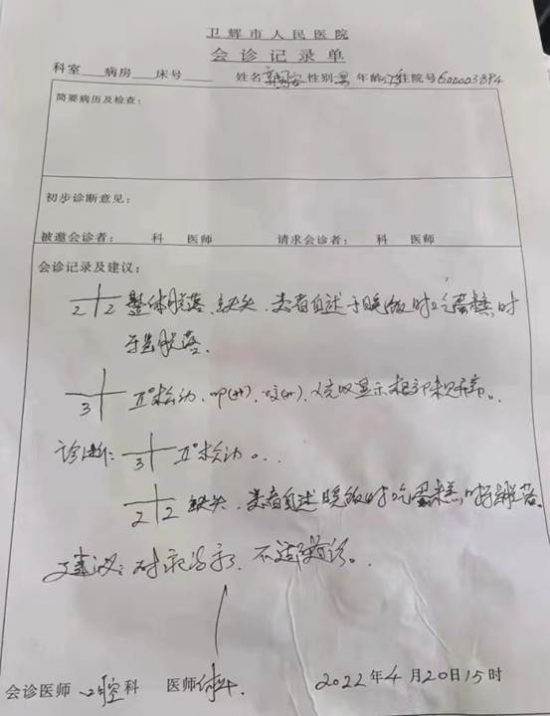 卫辉市人民医院
会诊记录单
科室 病房 床号 姓名 性别男 年龄 住院号602003894
简要病历及检查:
初步诊断意见:
被邀会诊者: 科 医师 请求会诊者: 科 医师
会诊记录及建议:
2 2 整体脱落、缺失、患者自述于晚饭时吃蛋糕时
脱落.
3 Ⅱ°松动、叩(+)、显示根部未见异常.
诊断: 3 Ⅱ°松动.
2 2 缺失、患者自述晚饭时吃蛋糕时脱落.
建议: 对症治疗、不适随诊.
会诊医师 口腔科 医师
2022年4月20日15时